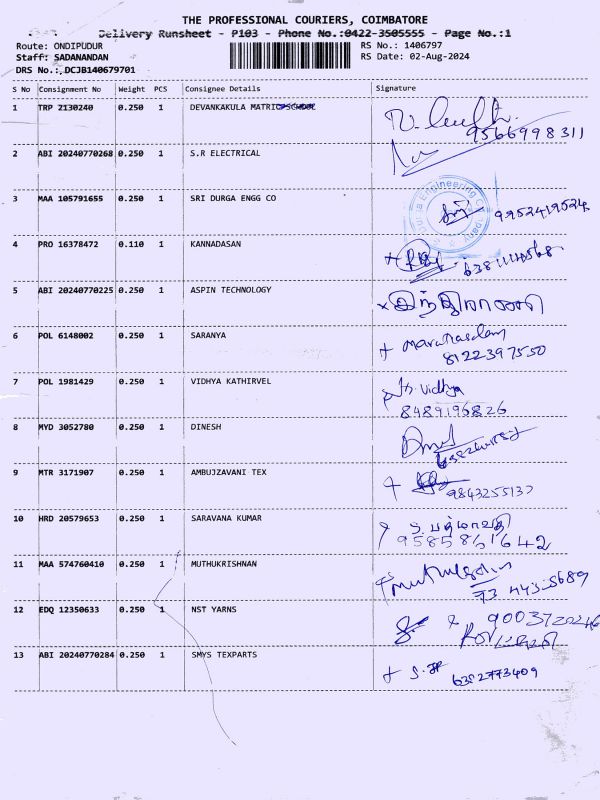 THE PROFESSIONAL COURIERS, COIMBATORE
Delivery Runsheet - P103 - Phone No.:0422-3505555 - Page No.:1
Route: ONDIPUDUR RS No.: 1406797
Staff: SADANANDAN RS Date: 02-Aug-2024
DRS No.: DCJB140679701
S No Consignment No Weight PCS Consignee Details Signature
1 TRP 2130240 0.250 1 DEVANKAKULA MATRIC SCHOOL
9566998311
2 ABI 20240770268 0.250 1 S.R ELECTRICAL
3 MAA 105791655 0.250 1 SRI DURGA ENGG CO
Durga Engineering Company
9952419524
4 PRO 16378472 0.110 1 KANNADASAN
5 ABI 20240770225 0.250 1 ASPIN TECHNOLOGY
6 POL 6148002 0.250 1 SARANYA
8122397550
7 POL 1981429 0.250 1 VIDHYA KATHIRVEL
Vidhya
8489196826
8 MYD 3052780 0.250 1 DINESH
9 MTR 3171907 0.250 1 AMBUJZAVANI TEX
10 HRD 20579653 0.250 1 SARAVANA KUMAR
9585861642
11 MAA 574760410 0.250 1 MUTHUKRISHNAN
12 EDQ 12350633 0.250 1 NST YARNS
13 ABI 20240770284 0.250 1 SMYS TEXPARTS
6382773409